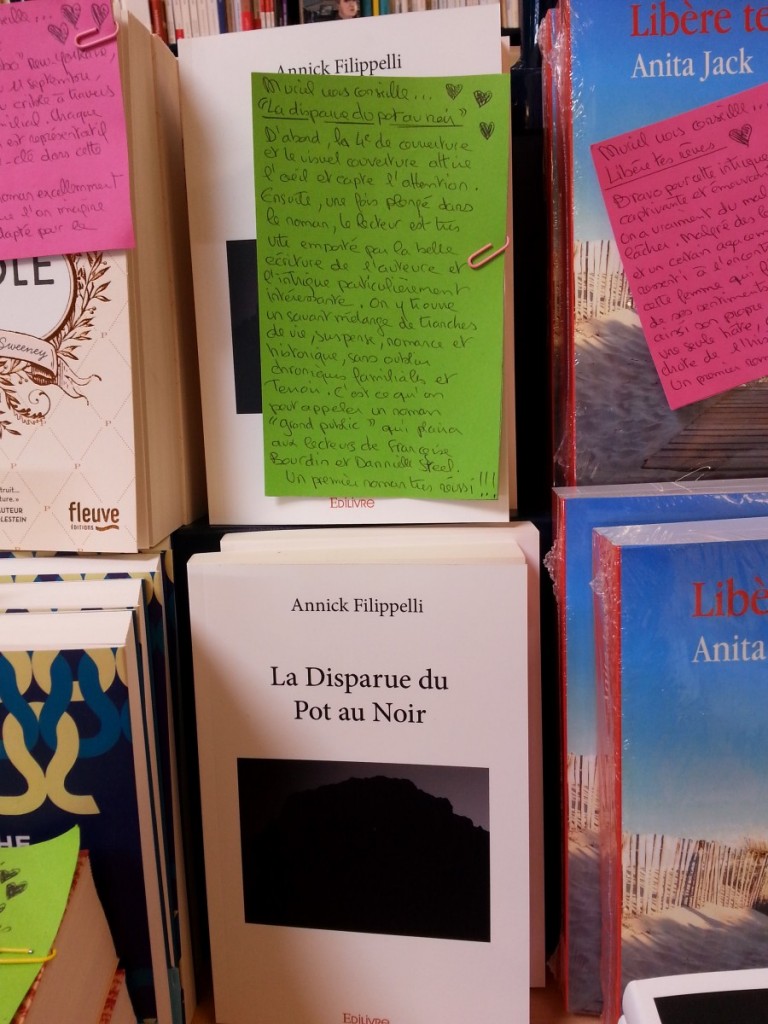 Annick Filippelli
Muriel vous conseille...
"La disparue du pot au noir"
D'abord, la 4e de couverture
et le visuel couverture attire
l'oeil et capte l'attention.
Ensuite, une fois plongé dans
le roman, le lecteur est très
vite emporté par la belle
écriture de l'auteure et
l'intrigue particulièrement
intéressante. On y trouve
un savant mélange de tranches
de vie, suspense, romance et
historique, sans oublier
chroniques familiales et
Terroir. C'est ce qu'on
peut appeler un roman
"grand public" qui plaira
aux lecteurs de Françoise
Bourdin et Dannielle Steel.
Un premier roman très réussi!!!
EDILIVRE
Annick Filippelli
La Disparue du
Pot au Noir
EDILIVRE
conseille...
New-Yorkaise,
11 septembre,
critre à travers
Chaque
est représentatif
clé dans cette
roman excellemment
l'on imagine
adapté pour la
Sweeney
AUTEUR
fleuve
ÉDITIONS
Libère te
Anita Jack
Muriel vous conseille...
Libère tes rêves
Bravo pour cette intrigue
captivante et
On a vraiment du mal
lâcher. Malgré
et un certain
ressenti à l'encontre
cette femme, qui
de ses sentiments
ainsi son propre
une seule hâte,
droite de l'
Un premier roman
Libè
Anita